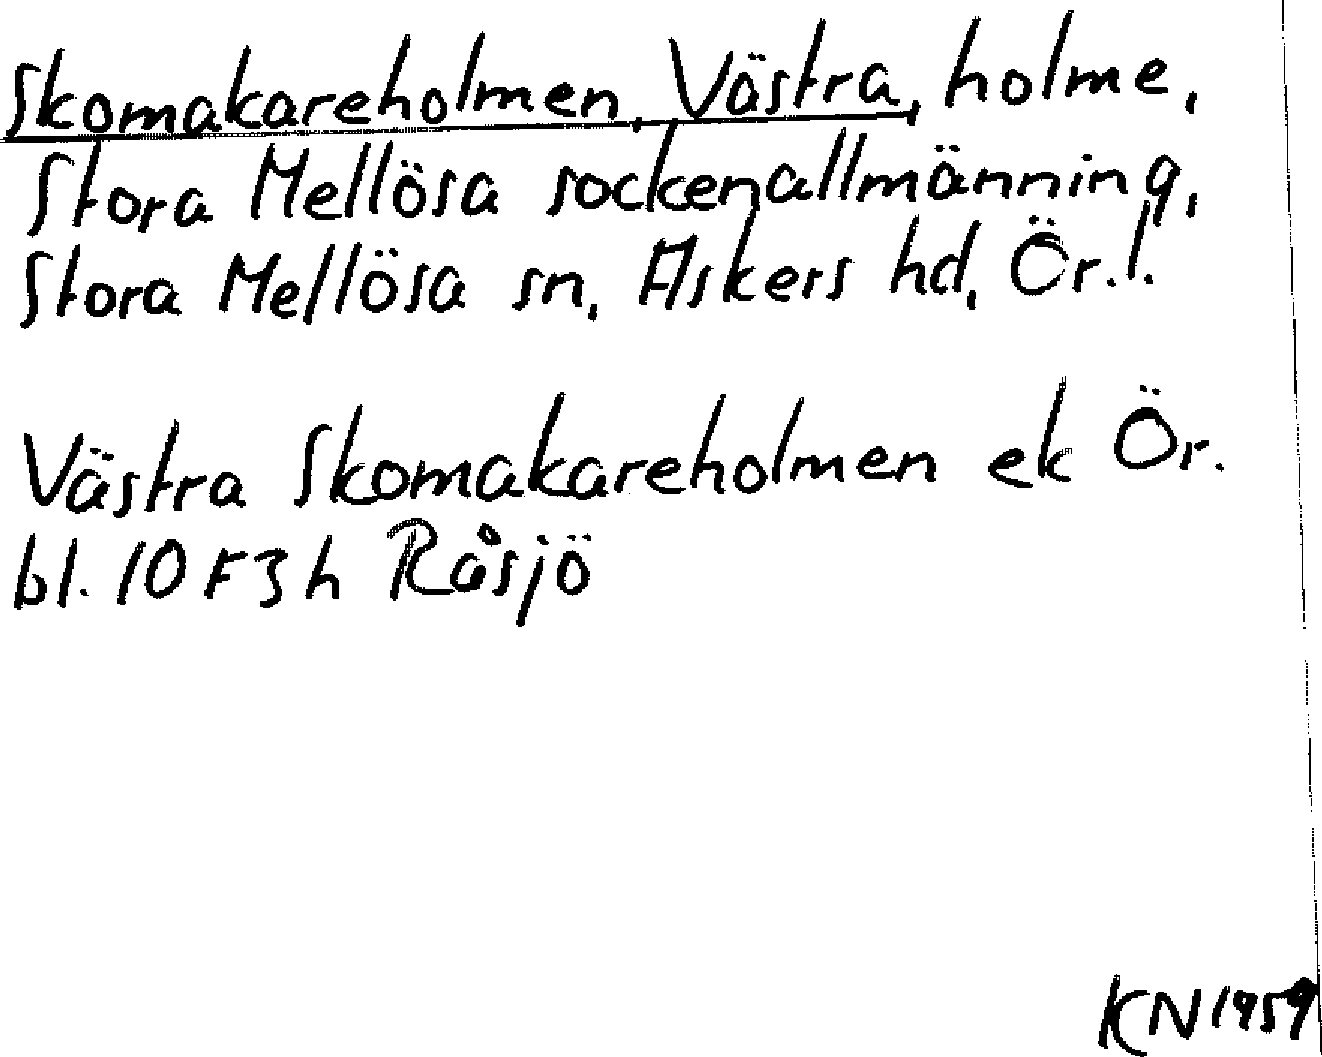 Skomakareholmen, Västra, holme,
Stora Mellösa sockenallmänning,
Stora Mellösa sn, Askers hd, Ör. l.
Västra Skomakareholmen ek Ör.
bl. 10 F 3 h Råsjö
KN 1959